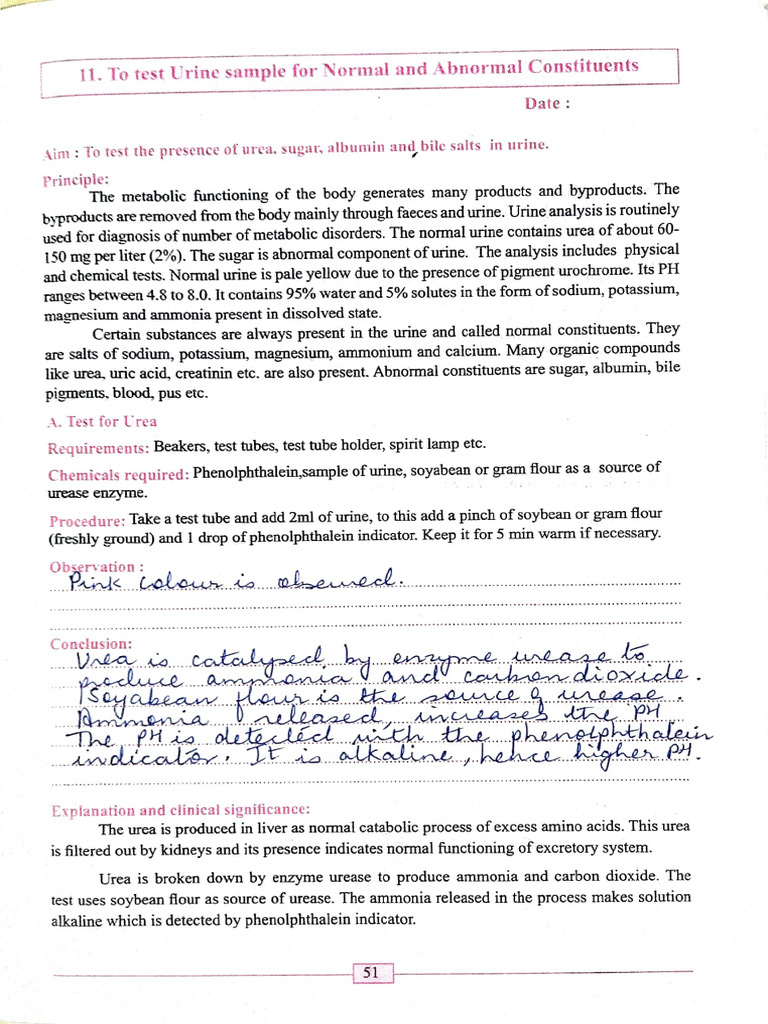 11. To test Urine sample for Normal and Abnormal Constituents
Date :
Aim : To test the presence of urea, sugar, albumin and bile salts in urine.
Principle:
The metabolic functioning of the body generates many products and byproducts. The
byproducts are removed from the body mainly through faeces and urine. Urine analysis is routinely
used for diagnosis of number of metabolic disorders. The normal urine contains urea of about 60-
150 mg per liter (2%). The sugar is abnormal component of urine. The analysis includes physical
and chemical tests. Normal urine is pale yellow due to the presence of pigment urochrome. Its PH
ranges between 4.8 to 8.0. It contains 95% water and 5% solutes in the form of sodium, potassium,
magnesium and ammonia present in dissolved state.
Certain substances are always present in the urine and called normal constituents. They
are salts of sodium, potassium, magnesium, ammonium and calcium. Many organic compounds
like urea, uric acid, creatinin etc. are also present. Abnormal constituents are sugar, albumin, bile
pigments, blood, pus etc.
A. Test for Urea
Requirements: Beakers, test tubes, test tube holder, spirit lamp etc.
Chemicals required: Phenolphthalein,sample of urine, soyabean or gram flour as a source of
urease enzyme.
Procedure: Take a test tube and add 2ml of urine, to this add a pinch of soybean or gram flour
(freshly ground) and 1 drop of phenolphthalein indicator. Keep it for 5 min warm if necessary.
Observation :
Pink colour is observed.
Conclusion:
Urea is catalysed by enzyme urease to
produce ammonia and carbondioxide.
Soyabean flour is the source of urease.
Ammonia released, increases the PH.
The PH is detected with the phenolphthalein
indicator. It is alkaline, hence higher PH.
Explanation and clinical significance:
The urea is produced in liver as normal catabolic process of excess amino acids. This urea
is filtered out by kidneys and its presence indicates normal functioning of excretory system.
Urea is broken down by enzyme urease to produce ammonia and carbon dioxide. The
test uses soybean flour as source of urease. The ammonia released in the process makes solution
alkaline which is detected by phenolphthalein indicator.
51